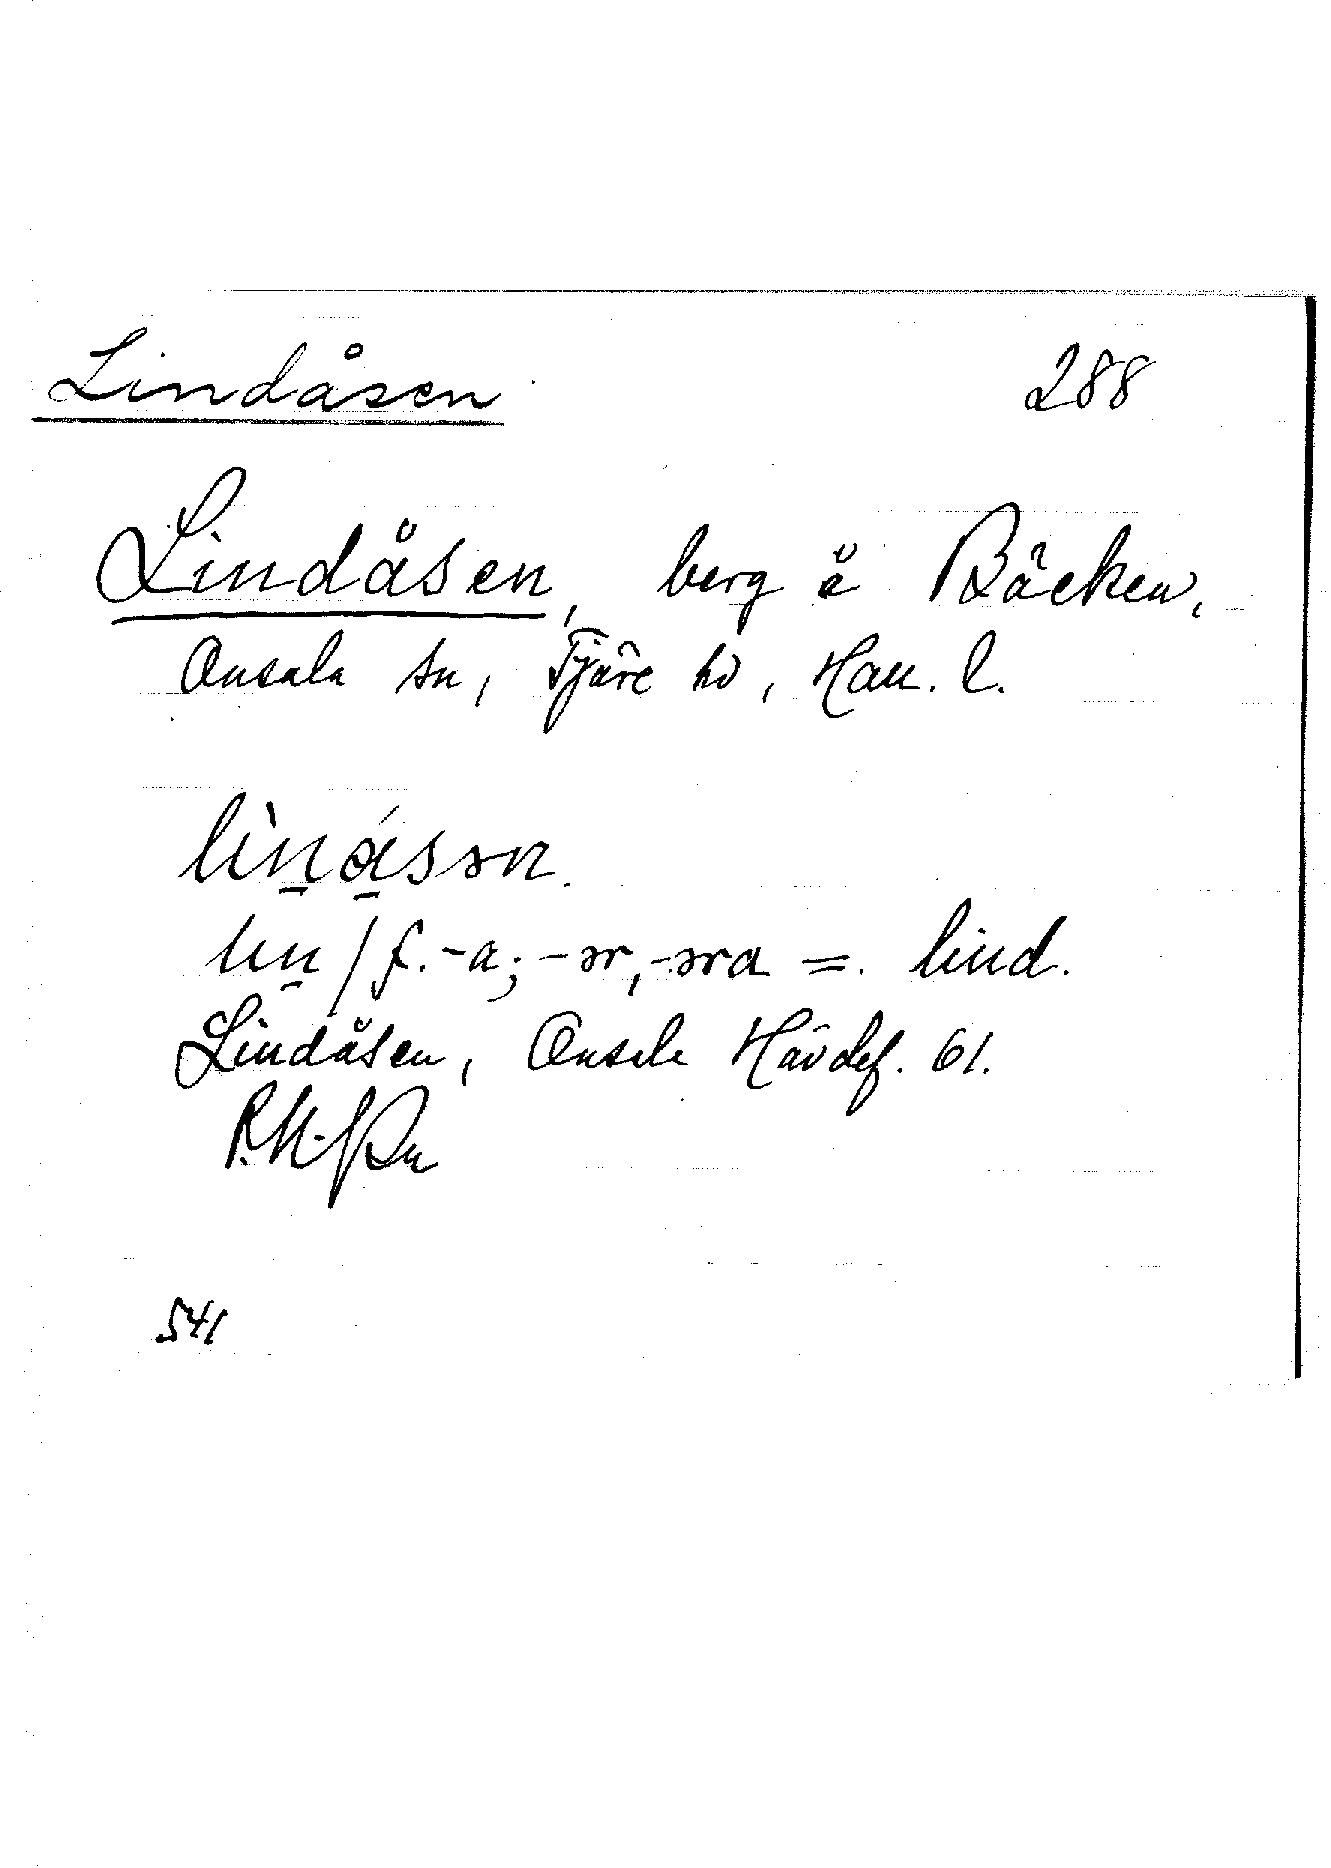 Lindåsen 288
Lindåsen, berg å Bäcken,
Onsala sn, Fjäre hd, Hall. l.
lìn̠á̠sən.
lin̠ / f. -a; -ər, -əra = lind.
Lindåsen, Onsala Hävdef. 61.
541